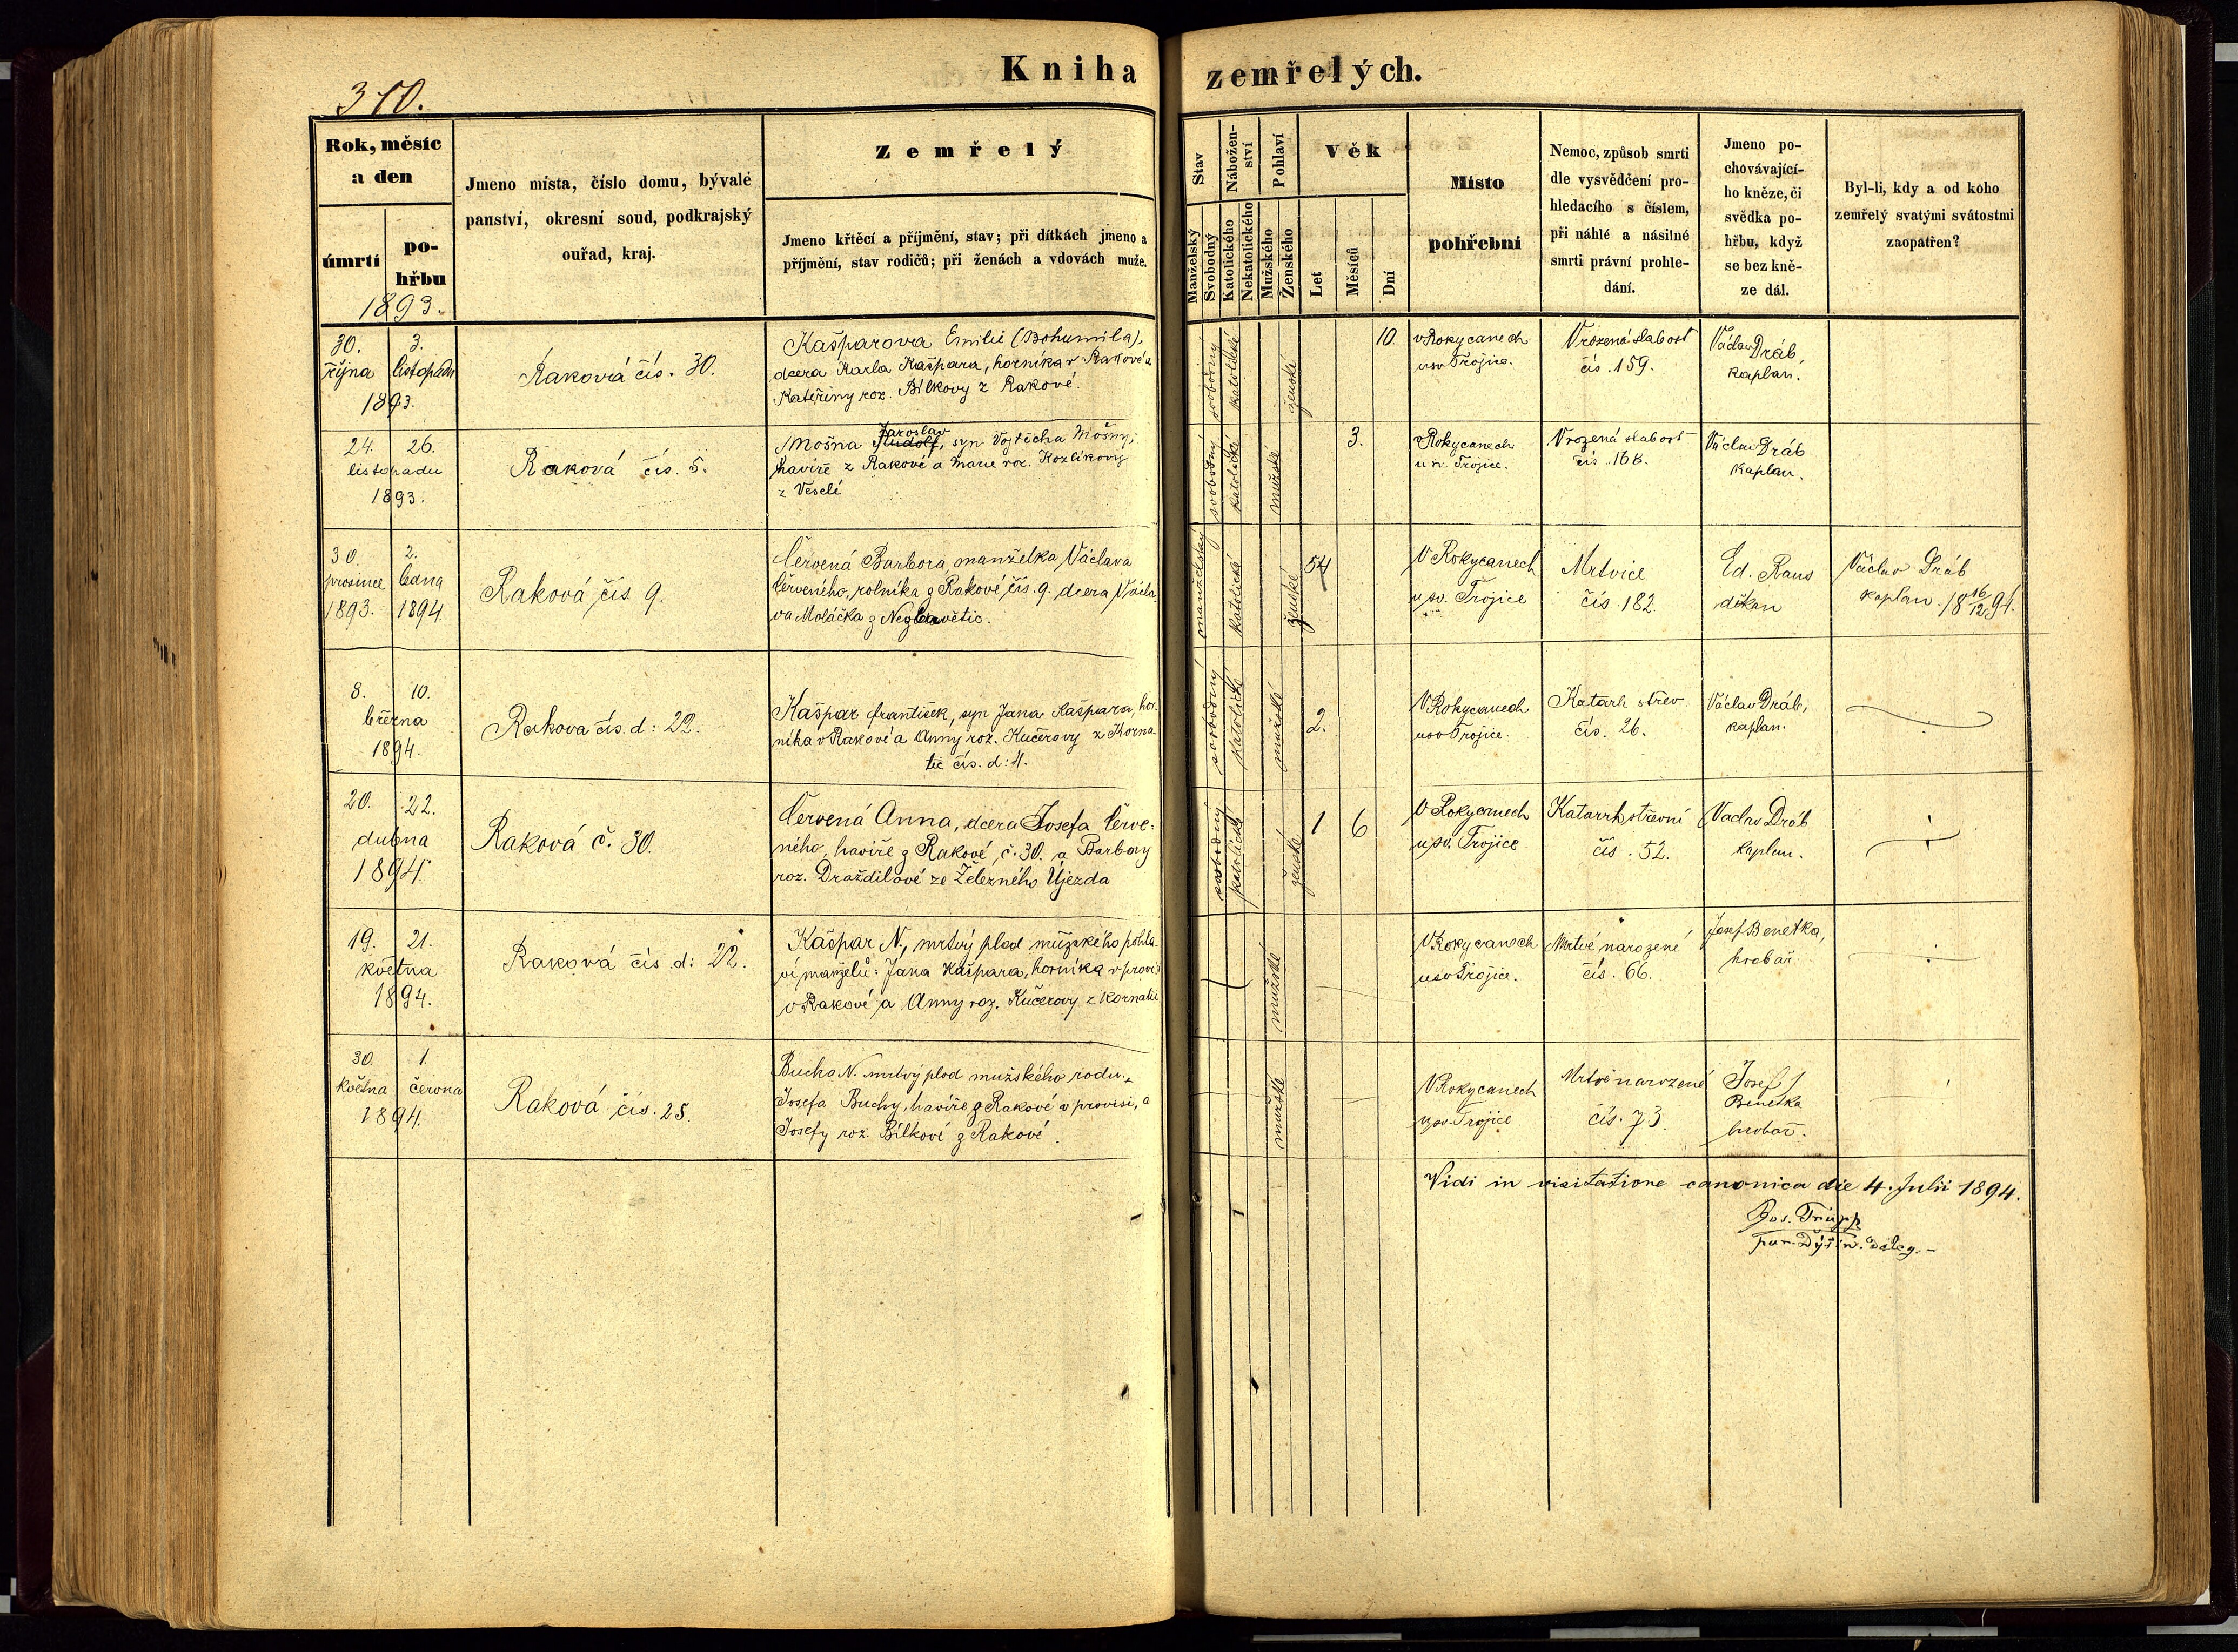 Kniha zemřelých.
310.
Rok, měsíc a den
úmrtí
po-
hřbu
1893.
Jmeno místa, číslo domu, bývalé
panství, okresní soud, podkrajský
ouřad, kraj.
Zemřelý
Jmeno křtěcí a příjmění, stav; při dítkách jmeno a
příjmění, stav rodičů; při ženách a vdovách muže.
Stav
Manželský
Svobodný
Nábožen-
ství
Katolického
Nekatolického
Pohlaví
Mužského
Ženského
Věk
Let
Měsíců
Dní
Místo
pohřební
Nemoc, způsob smrti
dle vysvědčení pro-
hledacího s číslem,
při náhlé a násilné
smrti právní prohle-
dání.
Jmeno po-
chovávající-
ho kněze, či
svědka po-
hřbu, když
se bez kně-
ze dál.
Byl-li, kdy a od koho
zemřelý svatými svátostmi
zaopatřen?
30. října
3. listopadu
1893.
Raková čís. 30.
Kašparova Emilie (Bohumila),
dcera Karla Kašpara, horníka v Rakové a
Kateřiny roz. Bílkovy z Rakové.
svobodný
katolické
ženské
10.
v Rokycanech
u sv. Trojice.
Vrozená slabost
čís. 159.
Václav Dráb,
kaplan.
24. 26.
listopadu
1893.
Raková čís. 5.
Jaroslav
Mošna Rudolf, syn Vojtěcha Mošny,
havíře z Rakové a Marie roz. Kozlíkovy
z Veselé
svobodný
katolické
mužské
3.
v Rokycanech
u sv. Trojice.
Vrozená slabost
čís. 168.
Václav Dráb
kaplan.
30. prosince 1893.
2. ledna 1894.
Raková čís. 9.
Červená Barbora, manželka Václava
Červeného, rolníka z Rakové čís. 9. dcera Václa-
va Moláčka z
manželský
katolické
ženské
54
V Rokycanech
u sv. Trojice
Mrtvice
čís. 182.
Ed. Raus
děkan
Václav Dráb
kaplan. 18 16/12 9
8. 10.
března
1894.
Rakova čís. d: 22.
Kašpar František, syn Jana Kašpara, hor-
níka v Rakové a Anny roz. Kučerovy z Korna-
tic čís. d: 4.
svobodný
katolické
mužské
2.
V Rokycanech
u sv. Trojice.
Katarh střev
čís. 26.
Václav Dráb,
kaplan.
20. 22.
dubna
1894.
Raková č. 30.
Červená Anna, dcera Josefa Červe-
ného, havíře z Rakové, č. 30. a Barbory
roz. Draždilové ze Železného Újezda
svobodný
katolické
ženské
1 6
V Rokycanech
u sv. Trojice
Katarrh střevní
čís. 52.
Vaclav Dráb
kaplan.
19. 21.
května
1894.
Raková čís. d: 22.
Kašpar N., mrtvý plod mužského pohla-
ví manželů: Jana Kašpara, horníka v provisi
v Rakové a Anny roz. Kučerovy z Kornatic
mužské
V Rokycanech
u sv. Trojice.
Mrtvě narozené
čís. 66.
Josef Benetka,
hrobař.
30. května
1. června
1894.
Raková čís. 25.
Bucha N. mrtvý plod mužského rodu
Josefa Buchy, havíře z Rakové v provisi, a
Josefy roz. Bílkové z Rakové.
mužské
V Rokycanech
u sv. Trojice
Mrtvě narozené
čís. 73.
Josef
Benetka
hrobař.
Vidi in visitatione canonica die 4. Julii 1894.